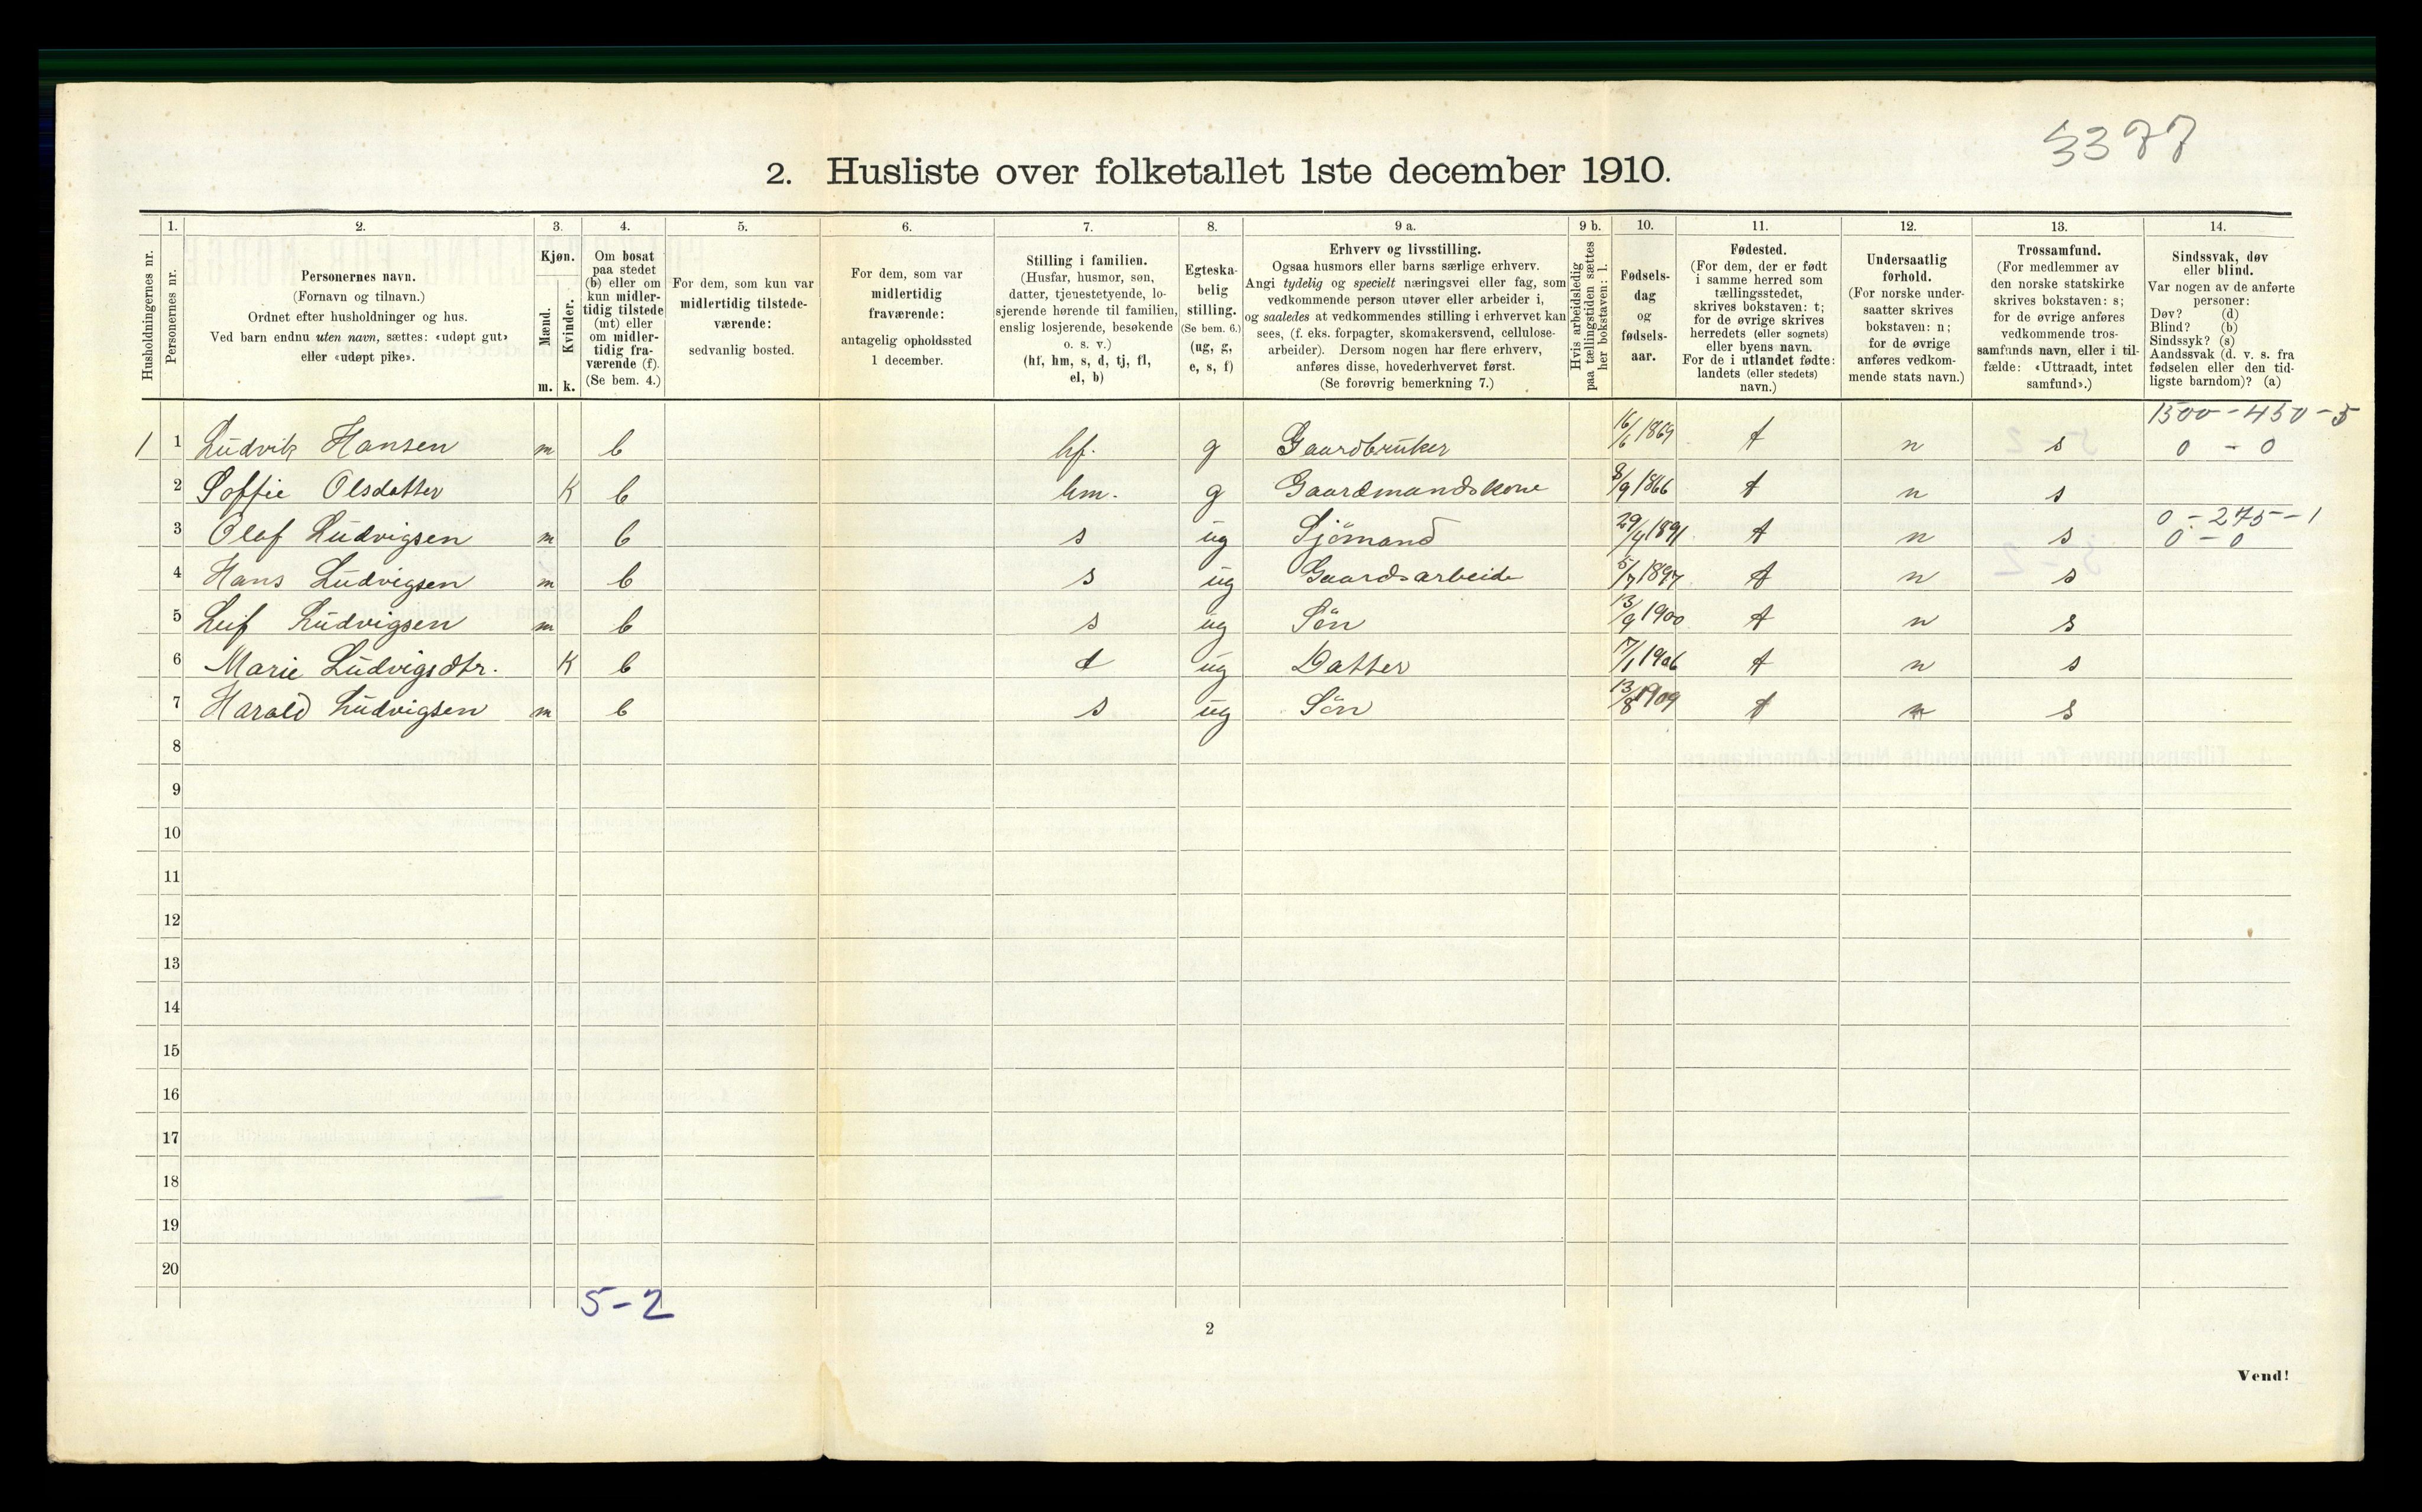 3377
2. Husliste over folketallet 1ste december 1910.
Husholdningernes nr.
1.
Personernes nr.
2.
Personernes navn.
(Fornavn og tilnavn.)
Ordnet efter husholdninger og hus.
Ved barn endnu uten navn, sættes: «udøpt gut»
eller «udøpt pike».
3.
Kjøn.
Mænd.
Kvinder.
m. k.
4.
Om bosat
paa stedet
(b) eller om
kun midler-
tidig tilstede
(mt) eller
om midler-
tidig fra-
værende (f).
(Se bem. 4.)
5.
For dem, som kun var
midlertidig tilstede-
værende:
sedvanlig bosted.
6.
For dem, som var
midlertidig
fraværende:
antagelig opholdssted
1 december.
7.
Stilling i familien.
(Husfar, husmor, søn,
datter, tjenestetyende, lo-
sjerende hørende til familien,
enslig losjerende, besøkende
o. s. v.)
(hf, hm, s, d, tj, fl,
el, b)
8.
Egteska-
belig
stilling.
(Se bem. 6.)
(ug, g,
e, s, f)
9 a.
Erhverv og livsstilling.
Ogsaa husmors eller barns særlige erhverv.
Angi tydelig og specielt næringsvei eller fag, som
vedkommende person utøver eller arbeider i,
og saaledes at vedkommendes stilling i erhvervet kan
sees, (f. eks. forpagter, skomakersvend, cellulose-
arbeider). Dersom nogen har flere erhverv,
anføres disse, hovederhvervet først.
(Se forøvrig bemerkning 7.)
9 b.
Hvis arbeidsledig
paa tællingstiden sættes
her bokstaven: l.
10.
Fødsels-
dag
og
fødsels-
aar.
11.
Fødested.
(For dem, der er født
i samme herred som
tællingsstedet,
skrives bokstaven: t;
for de øvrige skrives
herredets (eller sognets)
eller byens navn.
For de i utlandet fødte:
landets (eller stedets)
navn.)
12.
Undersaatlig
forhold.
(For norske under-
saatter skrives
bokstaven: n;
for de øvrige
anføres vedkom-
mende stats navn.)
13.
Trossamfund.
(For medlemmer av
den norske statskirke
skrives bokstaven: s;
for de øvrige anføres
vedkommende tros-
samfunds navn, eller i til-
fælde: «Uttraadt, intet
samfund».)
14.
Sindssvak, døv
eller blind.
Var nogen av de anførte
personer:
Døv? (d)
Blind? (b)
Sindssyk? (s)
Aandssvak (d. v. s. fra
fødselen eller den tid-
ligste barndom)? (a)
1500 - 450 - 5
1 1 Ludvik Hansen m b hf. g Gaardbruker 16/6 1869 t n s 0 - 0
2 Soffie Olsdatter K b hm. g Gaardmandskone 8/9 1866 t n s
0 - 275 - 1
3 Olaf Ludvigsen m b s ug Sjömand 29/4 1891 t n s 0 - 0
4 Hans Ludvigsen m b s ug Gaardsarbeide 5/7 1897 t n s
5 Leif Ludvigsen m b s ug Sön 13/9 1900 t n s
6 Marie Ludvigsdtr. K b d ug Datter 17/1 1906 t n s
7 Harald Ludvigsen m b s ug Sön 13/8 1909 t n s
8
9
10
11
12
13
14
15
16
17
18
19
20
5-2
2
Vend!